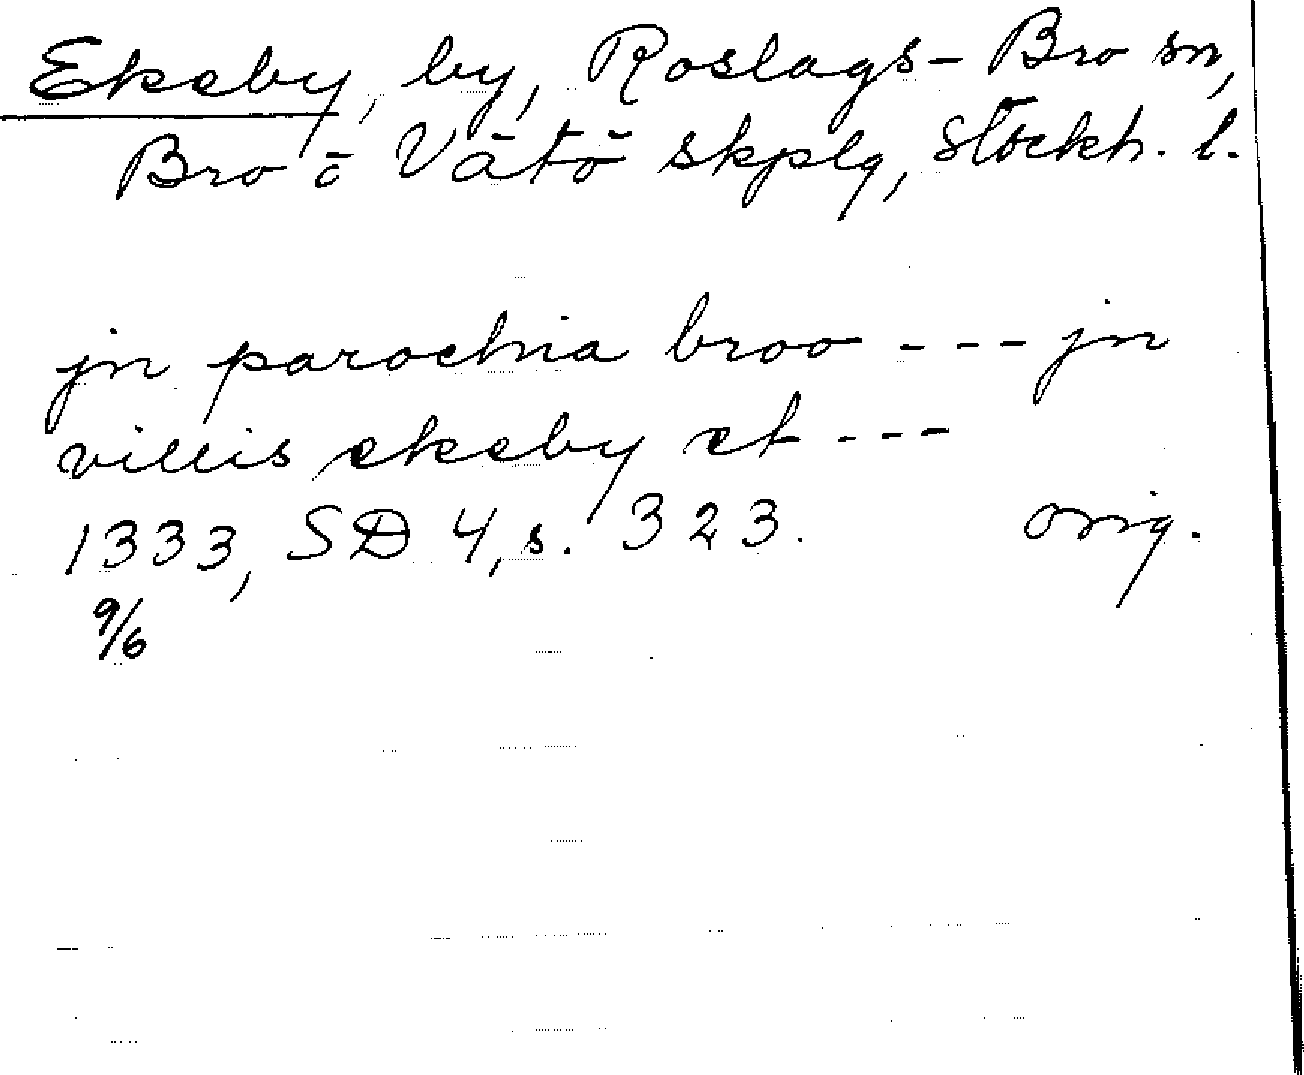 Ekeby, by, Roslags-Bro sn,
Bro o Vätö skplg, Stockh. l.
jn parochia broo --- jn
villis ekeby et ---
1333, SD 4, s. 323. orig.
9/6